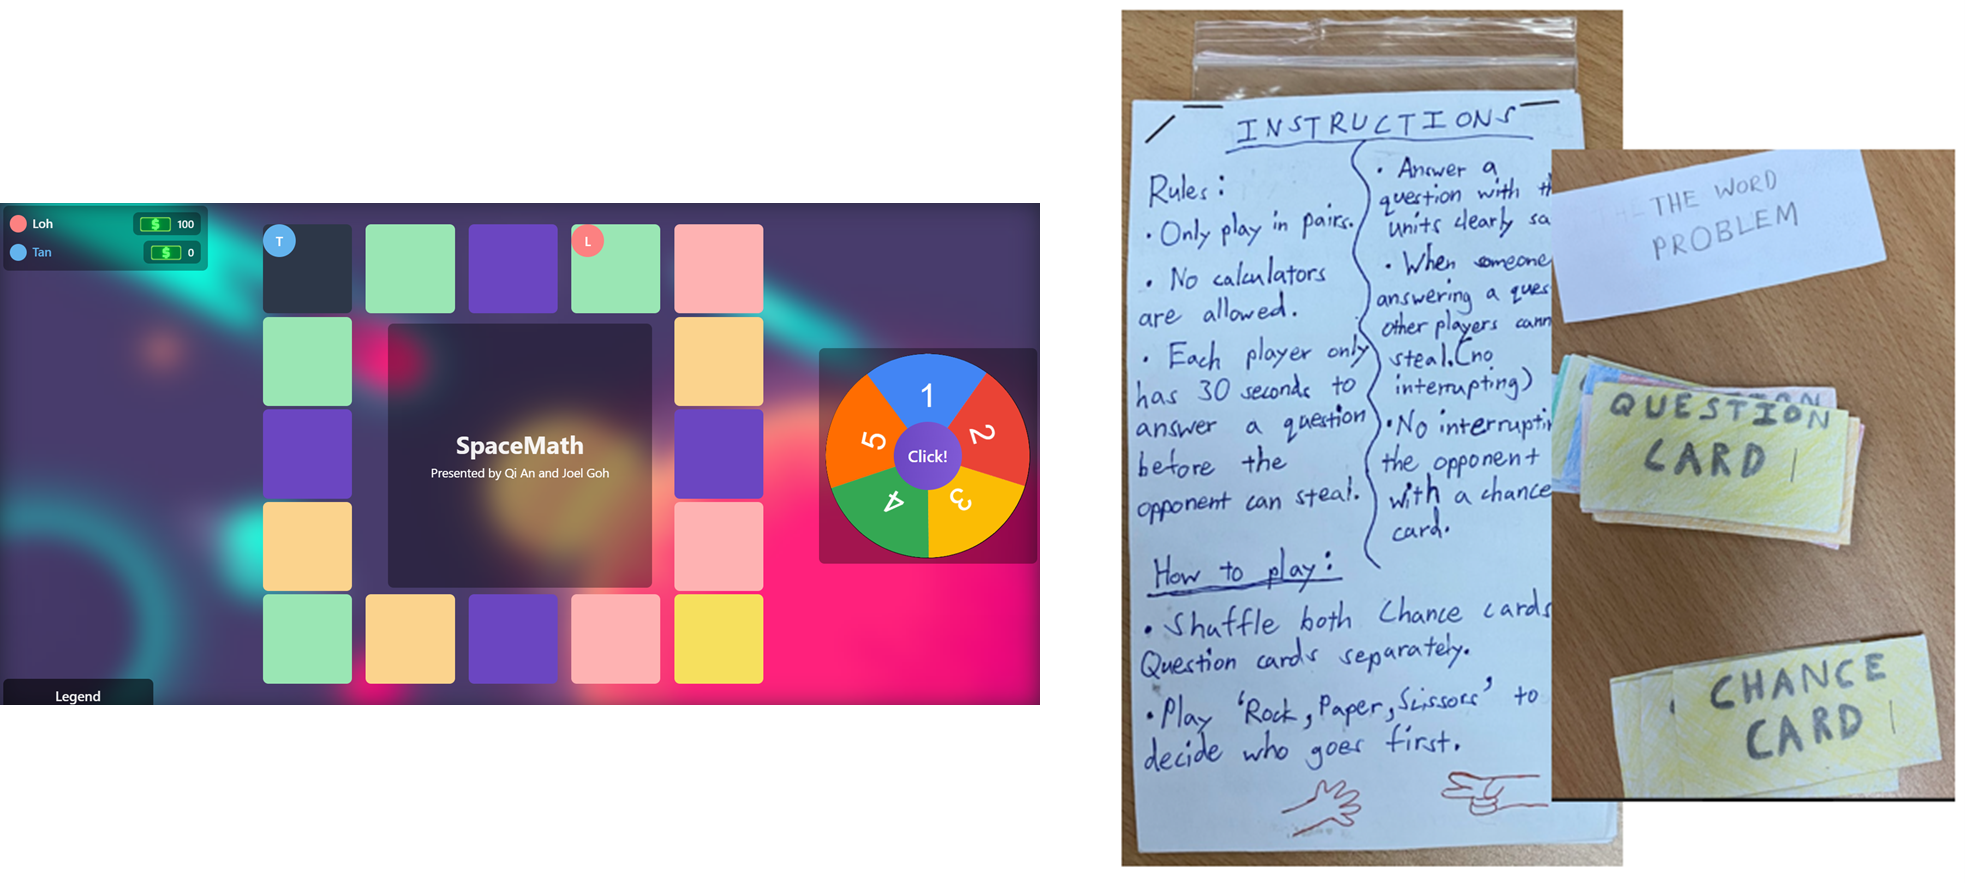 Loh
$
100
Tan
$
0
T
L
SpaceMath
Presented by Qi An and Joel Goh
1
2
3
4
5
Click!
Legend
INSTRUCTIONS
Rules:
• Only play in pairs.
• No calculators
are allowed.
• Each player only
has 30 seconds to
answer a question
before the
opponent can steal.
• Answer a
question with
units clearly
• When someone
answering a
other players
steal. (no
interrupting)
• No
the opponent
with a chance
card.
How to play:
• Shuffle both Chance cards
Question cards separately.
• Play 'Rock, Paper, Scissors' to
decide who goes first.
THE WORD
PROBLEM
QUESTION
CARD 1
CHANCE
CARD 1